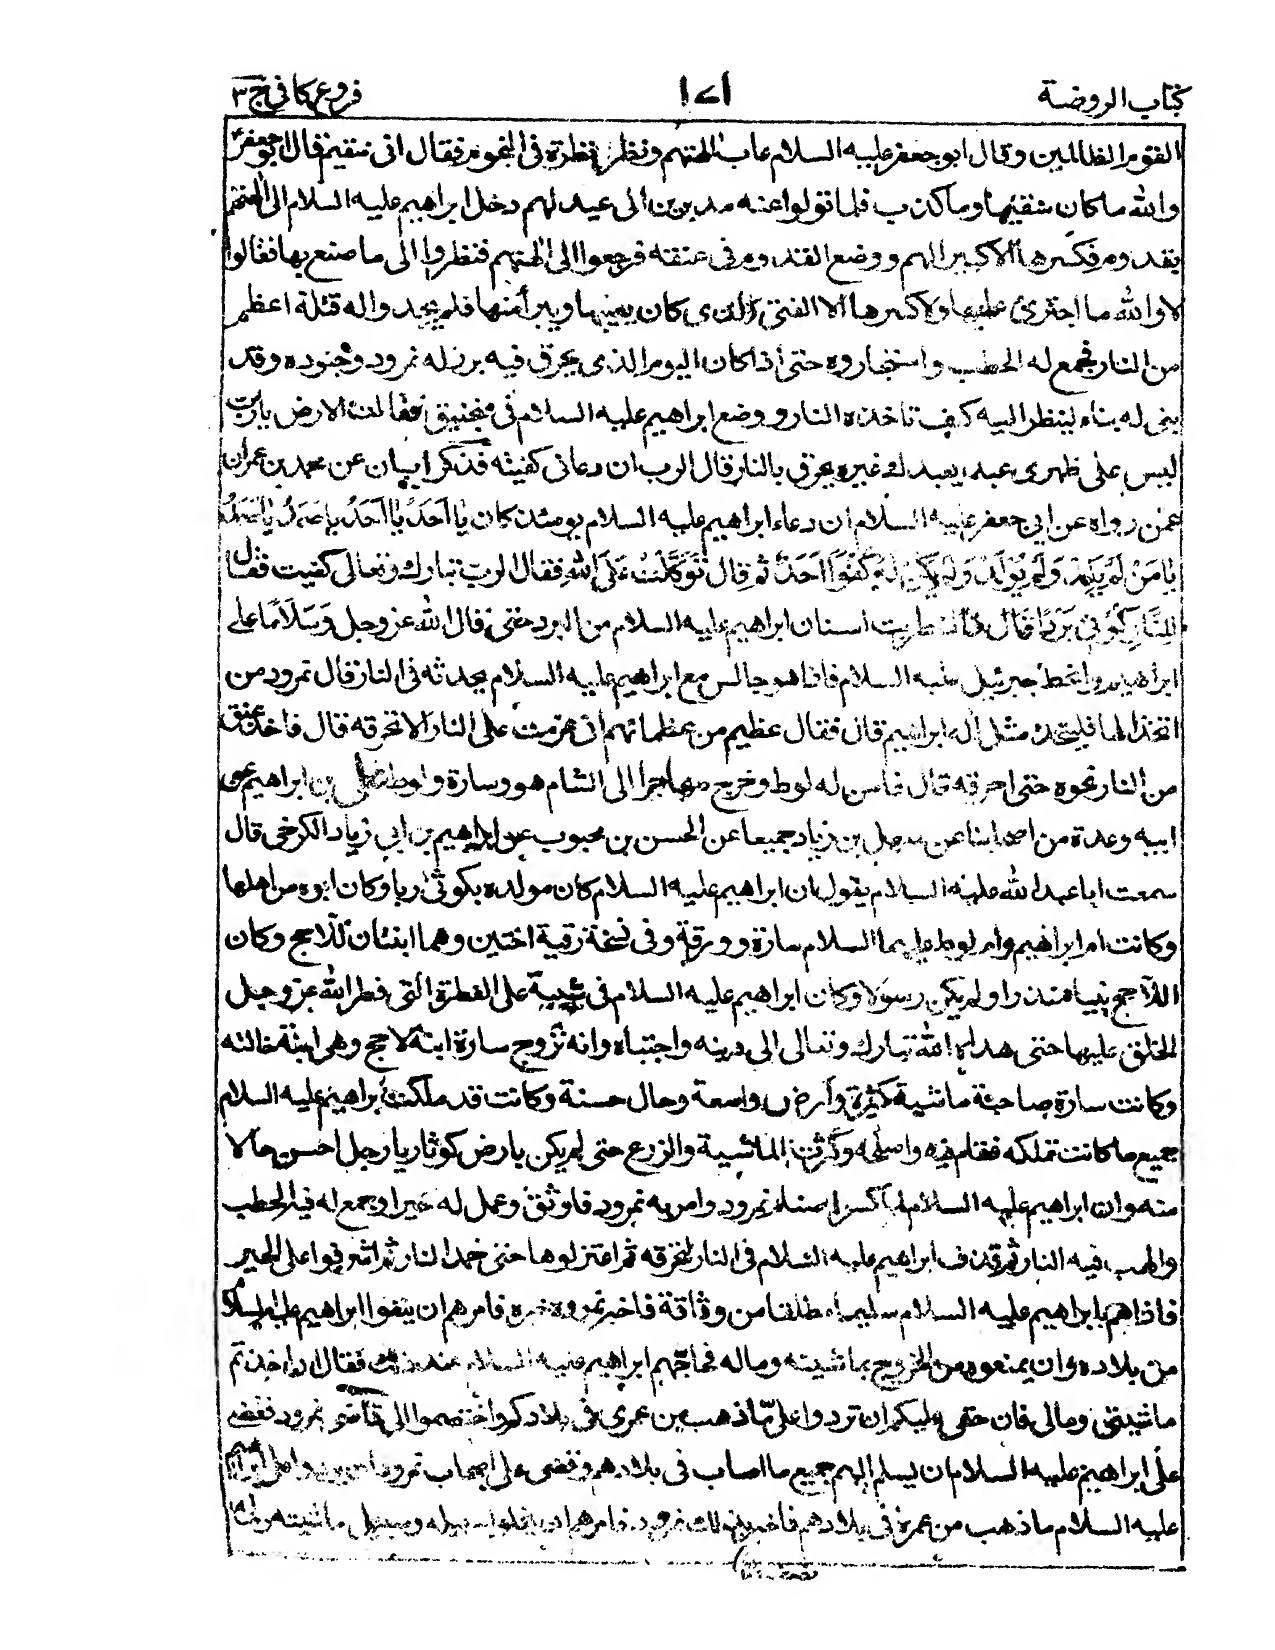 كتاب الروضة ١٧١ فروع كافی ج ٣
القوم الظالمين وقال ابو جعفر عليه السلام عاب الهتهم ونظر نظرة فى النجوم فقال انى سقيم قال ابو جعفر ع
والله ما كان سقيما وما كذب فلما تولوا عنه مدبرين الى عيد لهم دخل ابراهيم عليه السلام الى الهتهم
بقدوم فكسرها الا كبيرا لهم ووضع القدوم فى عنقه فرجعوا الى الهتهم فنظروا الى ما صنع بها فقالوا
لا والله ما اجترئ عليها ولا كسرها الا الفتى الذى كان يعيبها ويبرأ منها فلم يجدوا له قتلة اعظم
من النار فجمع له الحطب واستجاروه حتى اذا كان اليوم الذى يحرق فيه برز له نمرود وجنوده وقد
بنى له بناء لينظر اليه كيف تاخذه النار ووضع ابراهيم عليه السلام فى منجنيق فقالت الارض يا رب
ليس على ظهرى عبد يعبدك غيره يحرق بالنار قال الرب ان دعانى كفيته فذكر ابان عن محمد بن عمران
عمن رواه عن ابى جعفر عليه السلام ان دعاء ابراهيم عليه السلام يومئذ كان يَا اَحَدُ يَا اَحَدُ يا صَمَدُ يَا صَمَدُ
يَا مَنْ لَمْ يَلِدْ وَلَمْ يُوْلَدْ وَلَمْ يَكُنْ لَهُ كُفُوًا اَحَدٌ ثم قال تَوَكَّلْتُ عَلَى اللهِ فقال الرب تبارك وتعالى كفيت فقال
لِلنَّارِ كُوْنِى بَرْدًا قال فاضطربت اسنان ابراهيم عليه السلام من البرد حتى قال الله عز وجل وَسَلَامًا على
ابراهيم وانحط جبرئيل عليه السلام فاذا هو جالس مع ابراهيم عليه السلام يحدثه فى النار قال نمرود من
اتخذ الها فليتخذ مثل اله ابراهيم قال فقال عظيم من عظمائهم انى عزمت على النار الا تحرقه قال فاخذ عنق
من النار نحوه حتى احرقه قال فامن له لوط وخرج مهاجرا الى الشام هو وسارة ولوط على بن ابراهيم عن
ابيه وعدة من اصحابنا عن سهل بن زياد جميعا عن الحسن بن محبوب عن ابراهيم بن ابى زياد الكرخى قال
سمعت ابا عبد الله عليه السلام يقول ان ابراهيم عليه السلام كان مولده بكوثى ربا وكان ابوه من اهلها
وكانت ام ابراهيم وام لوط عليهما السلام سارة وورقة وفى نسخة رقية اختين وهما ابنتان للاحج وكان
اللاحج نبيا منذرا ولم يكن رسولا وكان ابراهيم عليه السلام فى شبيبة على الفطرة التى فطر الله عز وجل
الخلق عليها حتى هداه الله تبارك وتعالى الى دينه واجتباه وانه تزوج سارة ابنة لاحج وهى ابنة خالته
وكانت سارة صاحبة ماشية كثيرة وارض واسعة وحال حسنة وكانت قد ملكت ابراهيم عليه السلام
جميع ما كانت تملكه فقام فيه واصلحه وكثرت الماشية والزرع حتى لم يكن بارض كوثا ربا رجل احسن حالا
منه وان ابراهيم عليه السلام لما كسر اصنام نمرود وامر به نمرود فاوثق وعمل له حيرا وجمع له فيه الحطب
والهب فيه النار ثم قذف ابراهيم عليه السلام فى النار لتحرقه ثم اعتزلوها حتى خمدت النار ثم اشرفوا على الحير
فاذا هم بابراهيم عليه السلام سليما مطلقا من وثاقه فاخبر نمرود خبره فامرهم ان ينفوا ابراهيم عليه السلام
من بلاده وان يمنعوه من الخروج بماشيته وماله فحاجهم ابراهيم عليه السلام عند ذلك فقال ان اخذتم
ماشيتى ومالى فان حقى عليكم ان تردوا على ما ذهب من عمرى فى بلادكم واختصموا الى قاضى نمرود فقضى
على ابراهيم عليه السلام ان يسلم اليهم جميع ما اصاب فى بلادهم وقضى على اصحاب نمرود ان يردوا على ابراهيم
عليه السلام ما ذهب من عمره فى بلادهم فاخبر بذلك نمرود فامرهم ان يخلوا سبيله وسبيل ماشيته وماله